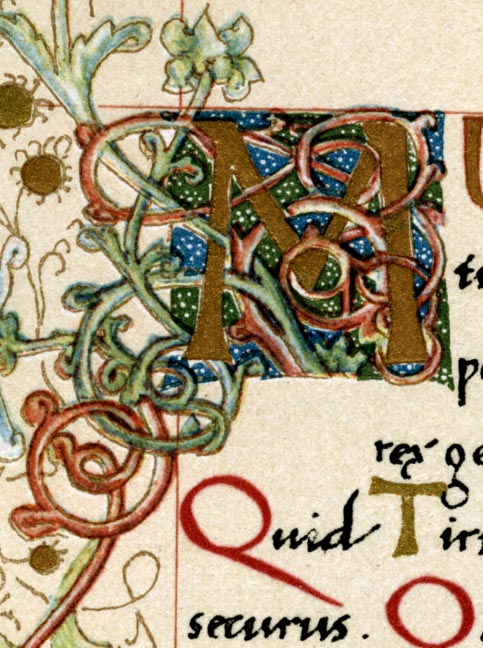 M
rex ge
Quid Ti
securus. O